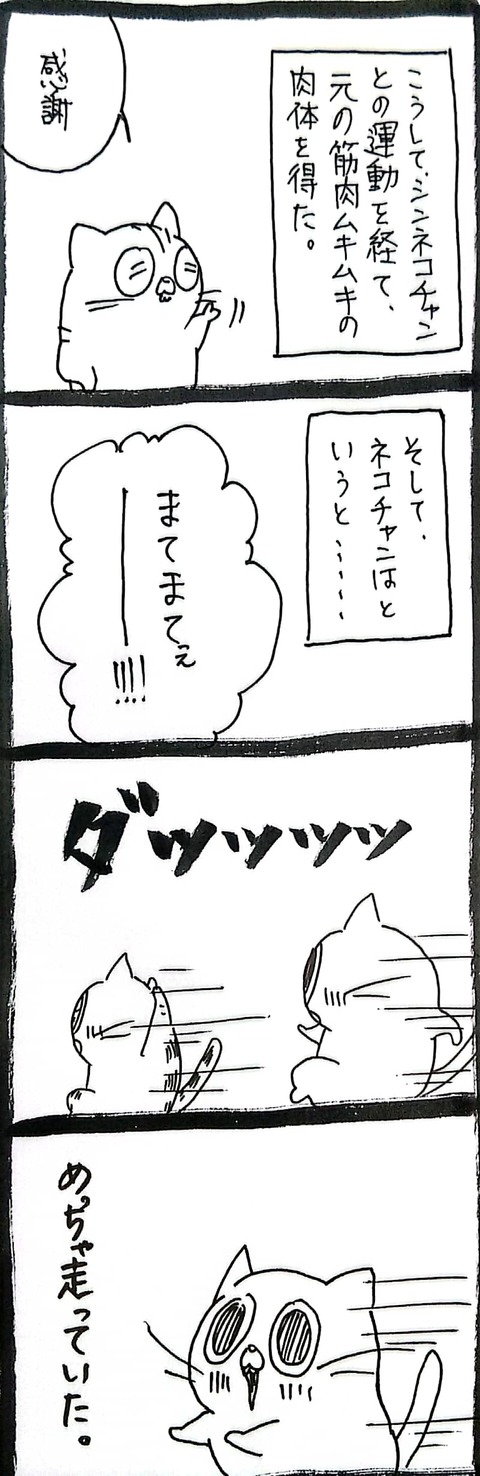 こうして、シンネコチャン
との運動を経て、
元の筋肉ムキムキの
肉体を得た。
感謝
そして、
ネコチャンはと
いうと……
まてまてぇ
――!!!!
ダッッッッ
めっちゃ走っていた。